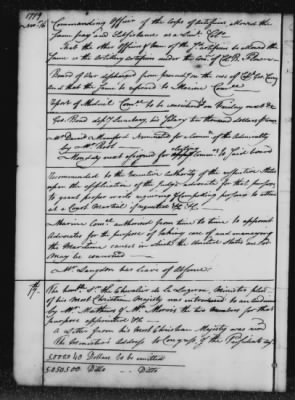 1779
Nov. 16
Commanding Officer of the Corps of Artificers, allowed the
same pay and Subsistence as a Lieut. Col.
That the other Officers & men of the Artificers be allowed the
same as the Artillery Artificers under the Com. of Col. B. Flower
Board of War dispensed from proceeding in the case of Col. Geo.
and that the same be referred to Marine Com.ee
report of Medical Com.ee to be considered on Friday next &c
Secretary, his Salary ten thousand Dollars
Mr. David Mumford nominated for a Comm.r of the Admiralty
by Mr. Root
Monday next assigned for electing Comm.rs to said board
Recommended to the Executive authority of the respective States
upon the application of the judge advocate for that purpose,
to grant proper writs requiring & compelling persons to attend
at a Court Martial if required &c. &c.
Marine Com.ee authorised from time to time to appoint
Advocates for the purpose of taking care of and managing
the Maritime causes in which the United States are, or
may be concerned
Mr. Langdon has leave of Absence
17
The hon.ble S.r the Chevalier de la Luzerne Minister plen.
of his Most Christian Majesty was introduced to an audience
by Mr. Mathews & Mr. Morris the two Members for that
purpose appointed &c
A Letter from his Most Christian Majesty was read
The Minister's Address to Congress & the Presidents
50000 40 Dollars to be emitted
5.050.500 Ditto Ditto